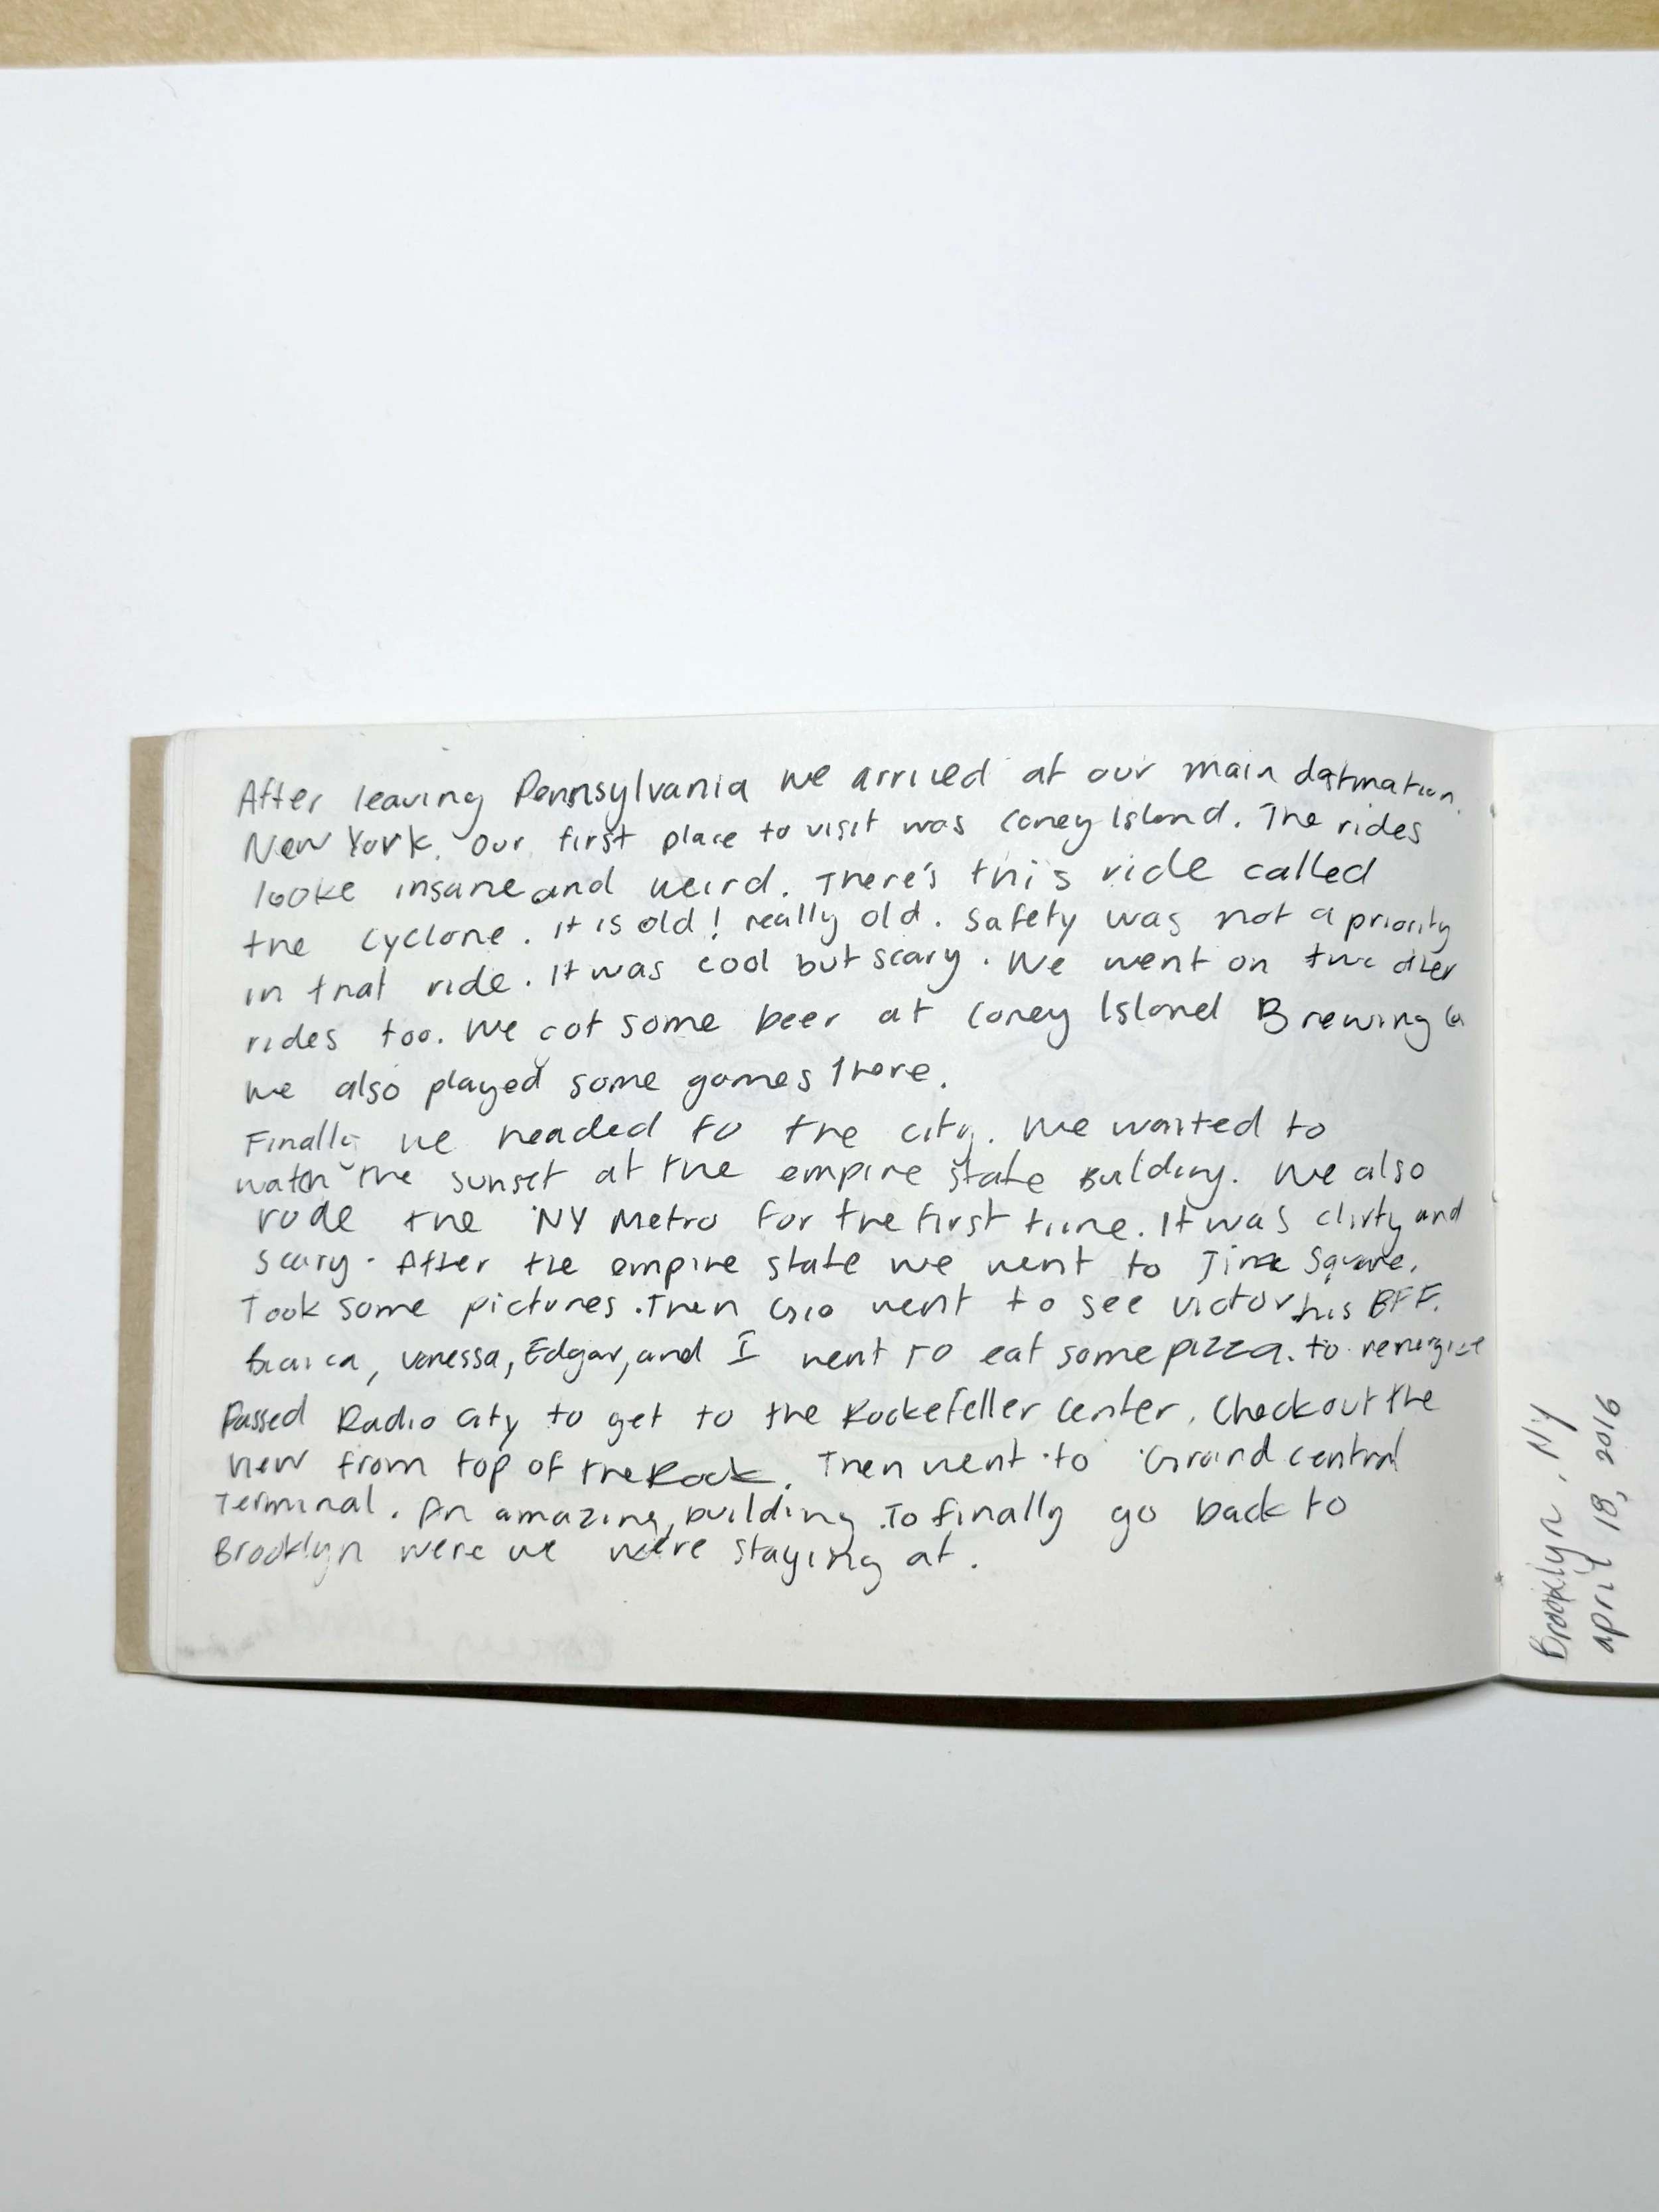 After leaving Pennsylvania we arrived at our main
New York. Our first place to visit was Coney Island. The rides
looke insane and weird. There's this ride called
the Cyclone. it is old! really old. Safety was not a priority
in that ride. It was cool but scary. We went on two other
rides too. We got some beer at Coney Island Brewing Co
we also played some games there.
Finally we headed to the city. We wanted to
watch the sunset at the empire state Building. We also
rode the NY Metro for the first time. It was dirty and
scary. After the empire state we went to Time Square.
Took some pictures. Then Gio went to see Victor his BFF.
Vanessa, Edgar, and I went to eat some pizza. to
Passed Radio City to get to the Rockefeller Center. Check out the
view from top of the Rock. Then went to Grand central
Terminal. An amazing building. To finally go back to
Brooklyn were we were staying at.
Brooklyn, NY
april 18, 2016